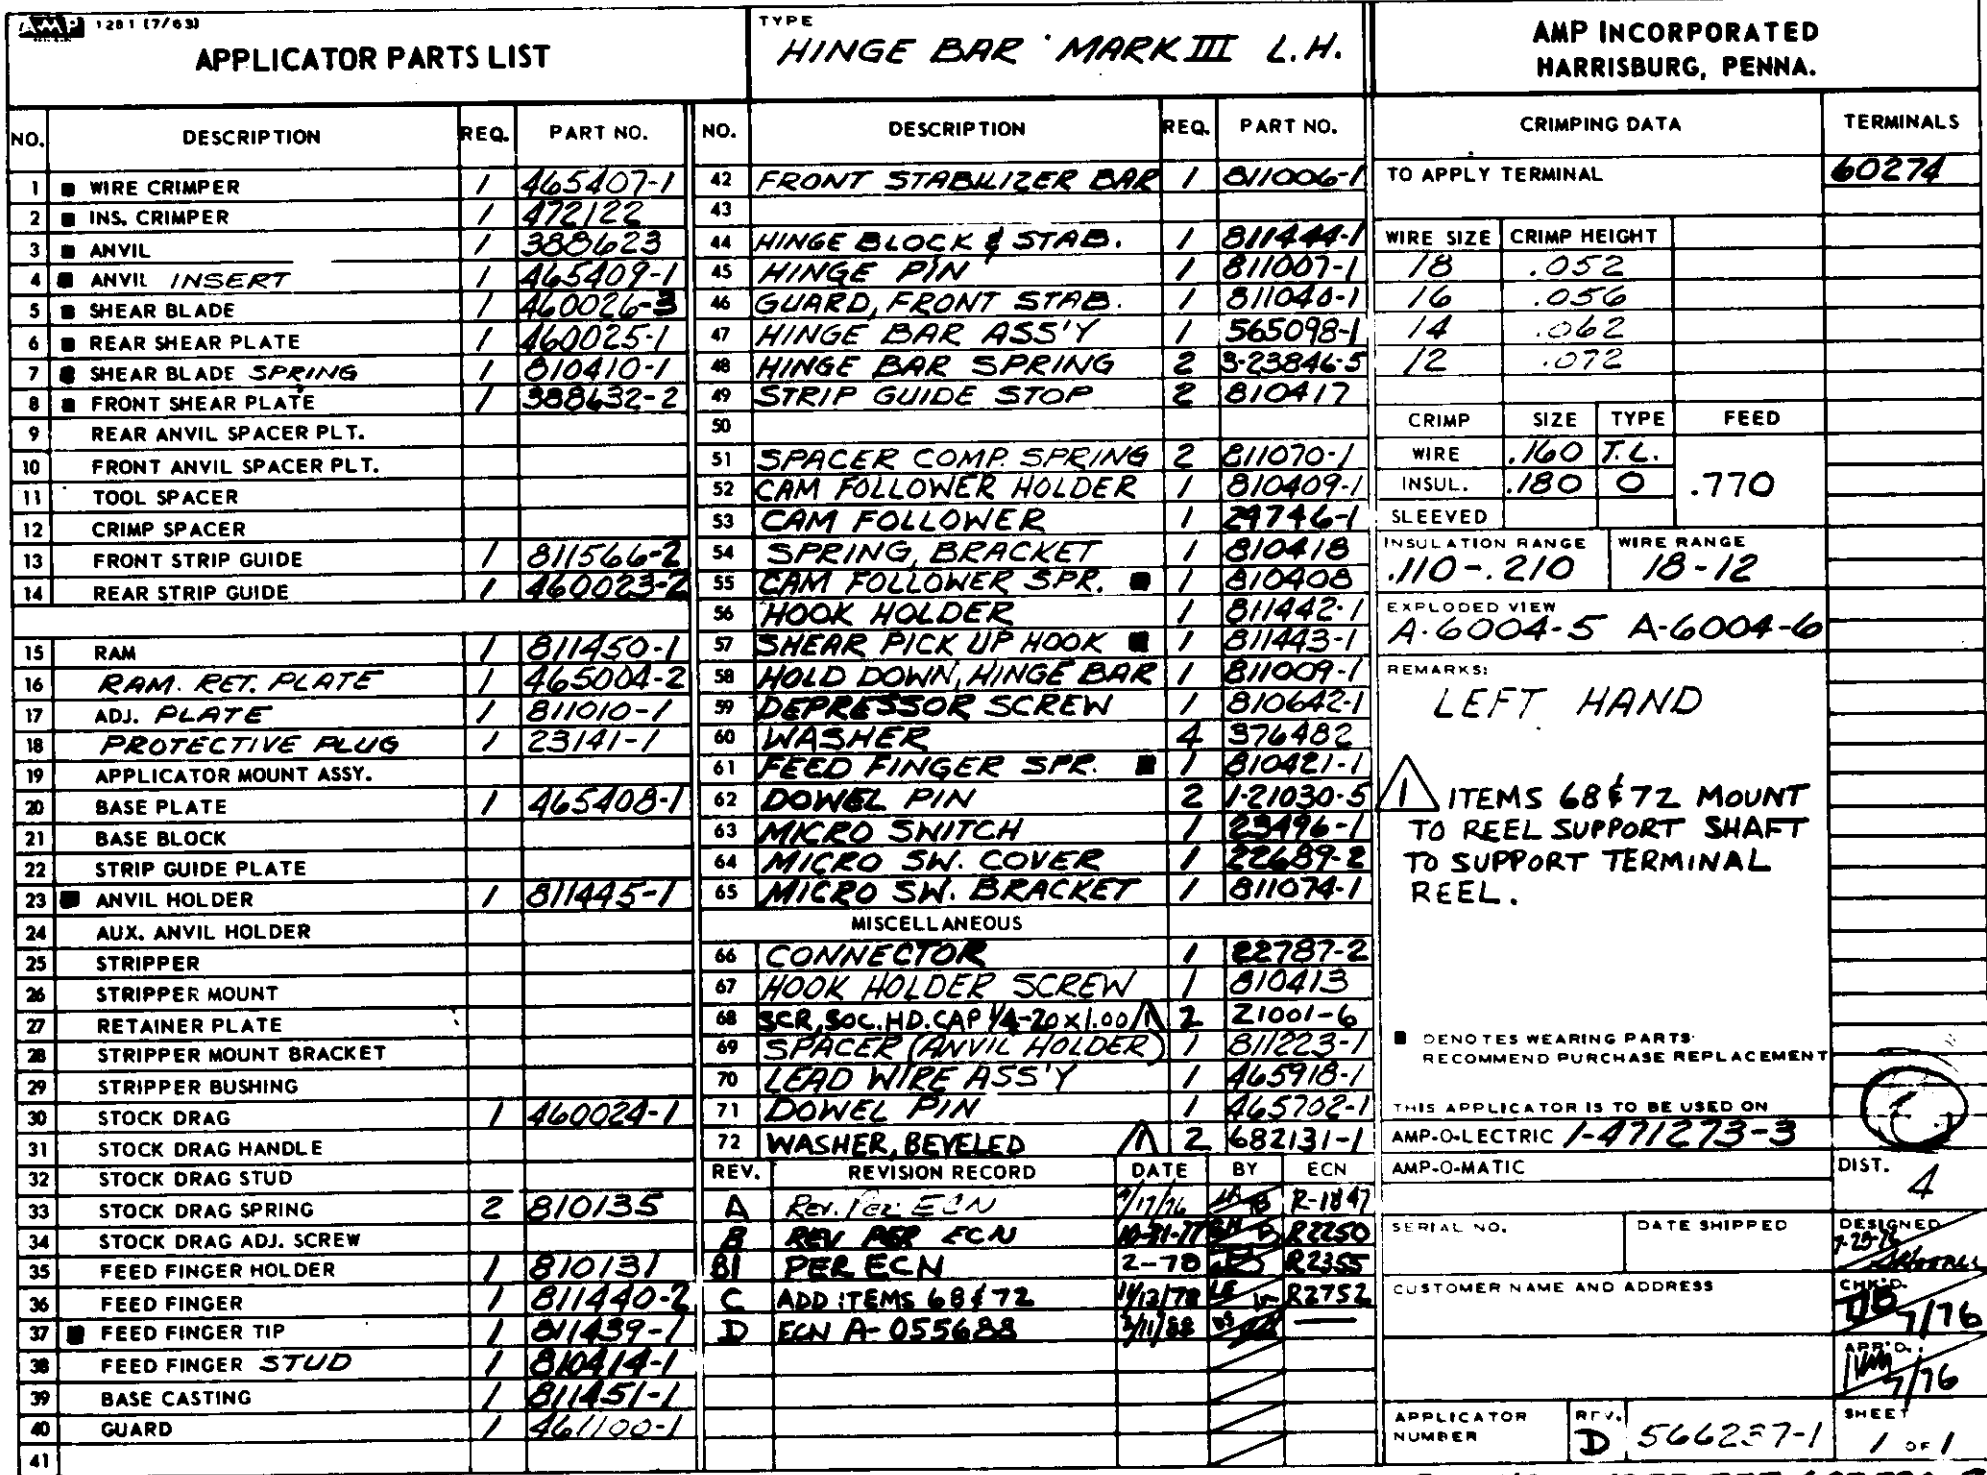 AMP 1281 (7/63)
APPLICATOR PARTS LIST
TYPE
HINGE BAR MARK III L.H.
AMP INCORPORATED
HARRISBURG, PENNA.
NO. DESCRIPTION REQ. PART NO.
1 ■ WIRE CRIMPER 1 465407-1
2 ■ INS. CRIMPER 1 472122
3 ■ ANVIL 1 388623
4 ■ ANVIL INSERT 1 465409-1
5 ■ SHEAR BLADE 1 460026-3
6 ■ REAR SHEAR PLATE 1 460025-1
7 ■ SHEAR BLADE SPRING 1 810410-1
8 ■ FRONT SHEAR PLATE 1 388632-2
9 REAR ANVIL SPACER PLT.
10 FRONT ANVIL SPACER PLT.
11 TOOL SPACER
12 CRIMP SPACER
13 FRONT STRIP GUIDE 1 811566-2
14 REAR STRIP GUIDE 1 460023-2
15 RAM 1 811450-1
16 RAM. RET. PLATE 1 465004-2
17 ADJ. PLATE 1 811010-1
18 PROTECTIVE PLUG 1 23141-1
19 APPLICATOR MOUNT ASSY.
20 BASE PLATE 1 465408-1
21 BASE BLOCK
22 STRIP GUIDE PLATE
23 ■ ANVIL HOLDER 1 811445-1
24 AUX. ANVIL HOLDER
25 STRIPPER
26 STRIPPER MOUNT
27 RETAINER PLATE
28 STRIPPER MOUNT BRACKET
29 STRIPPER BUSHING
30 STOCK DRAG 1 460024-1
31 STOCK DRAG HANDLE
32 STOCK DRAG STUD
33 STOCK DRAG SPRING 2 810135
34 STOCK DRAG ADJ. SCREW
35 FEED FINGER HOLDER 1 810131
36 FEED FINGER 1 811440-2
37 ■ FEED FINGER TIP 1 811439-1
38 FEED FINGER STUD 1 810414-1
39 BASE CASTING 1 811451-1
40 GUARD 1 461100-1
41
NO. DESCRIPTION REQ. PART NO.
42 FRONT STABILIZER BAR 1 811006-1
43
44 HINGE BLOCK & STAB. 1 811444-1
45 HINGE PIN 1 811007-1
46 GUARD, FRONT STAB. 1 811040-1
47 HINGE BAR ASS'Y 1 565098-1
48 HINGE BAR SPRING 2 3-23846-5
49 STRIP GUIDE STOP 2 810417
50
51 SPACER COMP. SPRING 2 811070-1
52 CAM FOLLOWER HOLDER 1 810409-1
53 CAM FOLLOWER 1 29746-1
54 SPRING, BRACKET 1 810418
55 CAM FOLLOWER SPR. ■ 1 810408
56 HOOK HOLDER 1 811442-1
57 SHEAR PICK UP HOOK ■ 1 811443-1
58 HOLD DOWN, HINGE BAR 1 811009-1
59 DEPRESSOR SCREW 1 810642-1
60 WASHER 4 376482
61 FEED FINGER SPR. ■ 1 810421-1
62 DOWEL PIN 2 1-21030-5
63 MICRO SWITCH 1 23496-1
64 MICRO SW. COVER 1 22689-2
65 MICRO SW. BRACKET 1 811074-1
MISCELLANEOUS
66 CONNECTOR 1 22787-2
67 HOOK HOLDER SCREW 1 810413
68 SCR, SOC. HD. CAP 1/4-20 x 1.00 /1\ 2 21001-6
69 SPACER (ANVIL HOLDER) 1 811223-1
70 LEAD WIRE ASS'Y 1 465918-1
71 DOWEL PIN 1 465702-1
72 WASHER, BEVELED /1\ 2 682131-1
REV. REVISION RECORD DATE BY ECN
A Rev. Per ECN /17/76 R-1847
B REV PER ECN 10-31-77 R2250
B1 PER ECN 2-78 R2355
C ADD ITEMS 68 & 72 R2752
D ECN A-055688 /11/88
CRIMPING DATA TERMINALS
TO APPLY TERMINAL 60274
WIRE SIZE CRIMP HEIGHT
18 .052
16 .056
14 .062
12 .072
CRIMP SIZE TYPE FEED
WIRE .160 T.L.
INSUL. .180 O .770
SLEEVED
INSULATION RANGE WIRE RANGE
.110-.210 18-12
EXPLODED VIEW
A-6004-5 A-6004-6
REMARKS:
LEFT HAND
/1\ ITEMS 68 & 72 MOUNT
TO REEL SUPPORT SHAFT
TO SUPPORT TERMINAL
REEL.
■ DENOTES WEARING PARTS
RECOMMEND PURCHASE REPLACEMENT
THIS APPLICATOR IS TO BE USED ON
AMP-O-LECTRIC 1-471273-3
AMP-O-MATIC
DIST. 4
SERIAL NO. DATE SHIPPED
DESIGNED
CUSTOMER NAME AND ADDRESS
CHK'D.
7/76
APR'D.
7/76
APPLICATOR NUMBER
REV. D 566237-1
SHEET 1 OF 1